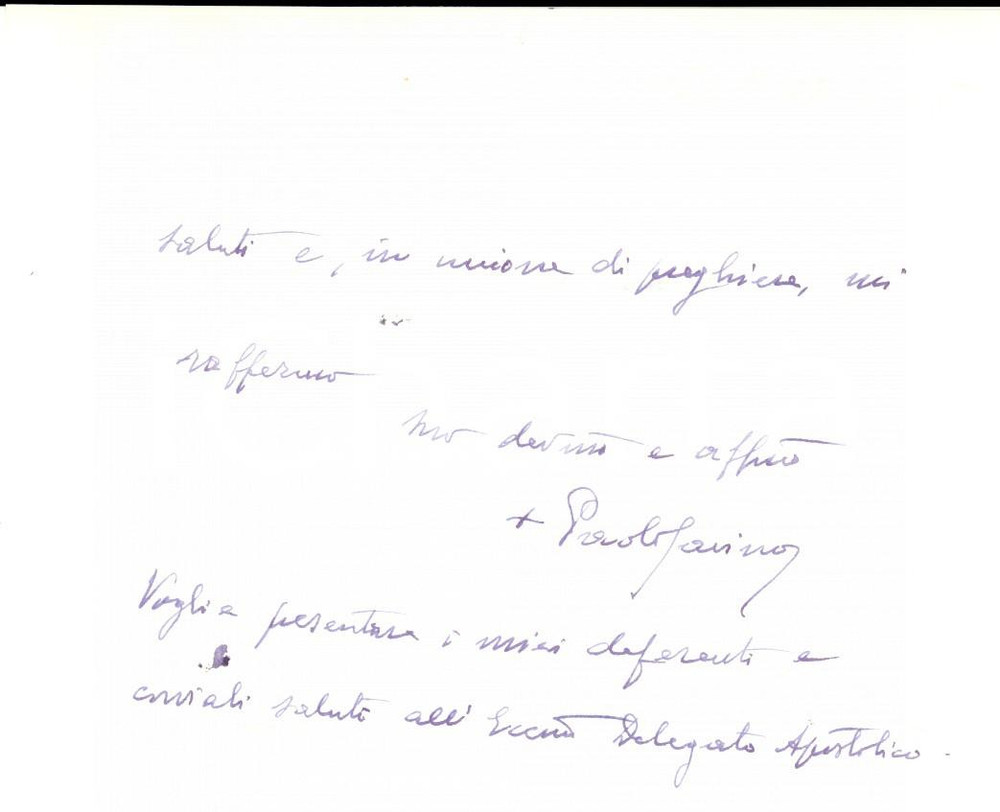 saluti e, in unione di preghiere, mi
raffermo
suo dev.mo e aff.mo
+ Paolo Savino
Voglia presentare i miei deferenti e
cordiali saluti all' Eccmo Delegato Apostolico.